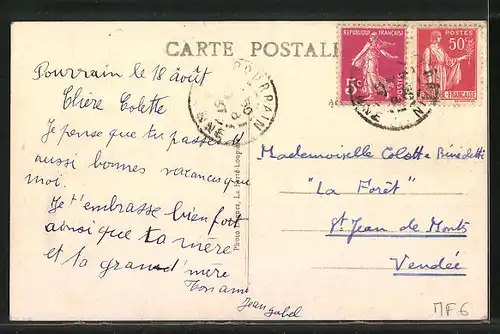 CARTE POSTALE
REPUBLIQUE FRANÇAISE
5c
POSTES
50c
POURRAIN
YONNE
Pourrain le 18 août
Chère Colette
Je pense que tu passes d
aussi bonnes vacances que
moi.
Je t'embrasse bien fort
ainsi que ta mère
et ta grand'mère
Ton ami
Jean
Mademoiselle Colette Bénédetti
"La Forêt"
St Jean de Monts
Vendée
MF6